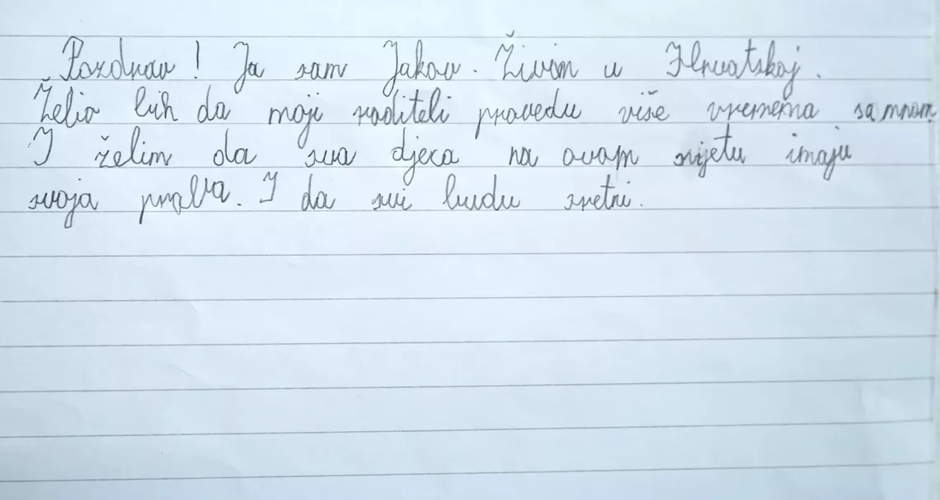 Pozdrav! Ja sam Jakov. Živim u Hrvatskoj.
Želio bih da moji roditeli provedu više vremema sa mnom
I želim da sva djeca na ovom svijetu imaju
svoja prava. I da svi budu sretni.